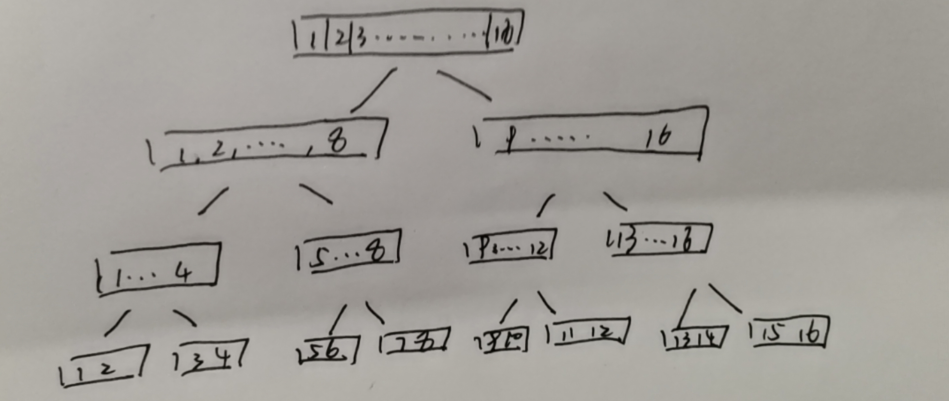 1 2 3 ........ 16
1, 2, ...., 8 9 ..... 16
1... 4 5...8 9....12 13...16
1 2 3 4 5 6 7 8 9 10 11 12 13 14 15 16